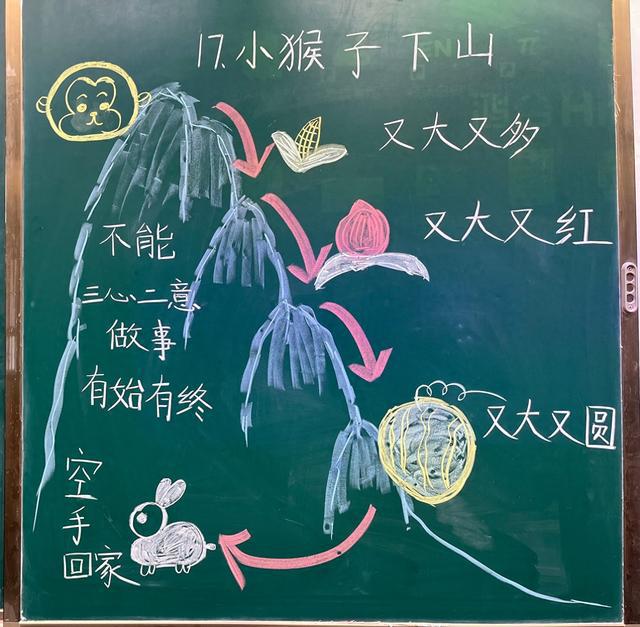 17.小猴子下山
又大又多
又大又红
不能
三心二意
做事
有始有终
又大又圆
空
手
回家